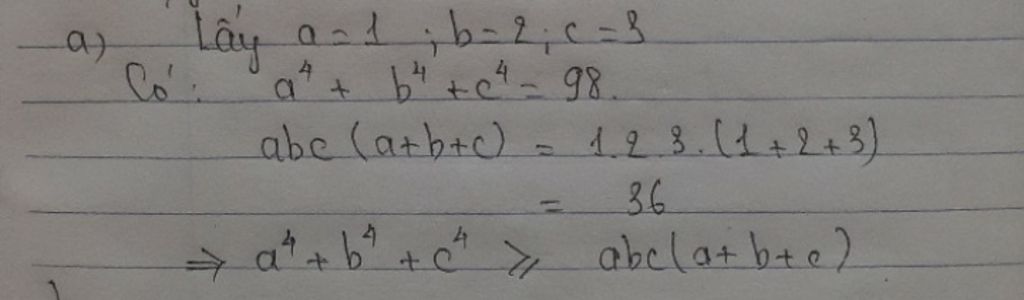 a) Lấy a = 1 ; b = 2 ; c = 3
Có : a⁴ + b⁴ + c⁴ = 98.
abc (a+b+c) = 1.2.3.(1+2+3)
= 36
⇒ a⁴ + b⁴ + c⁴ ⩾ abc(a+b+c)